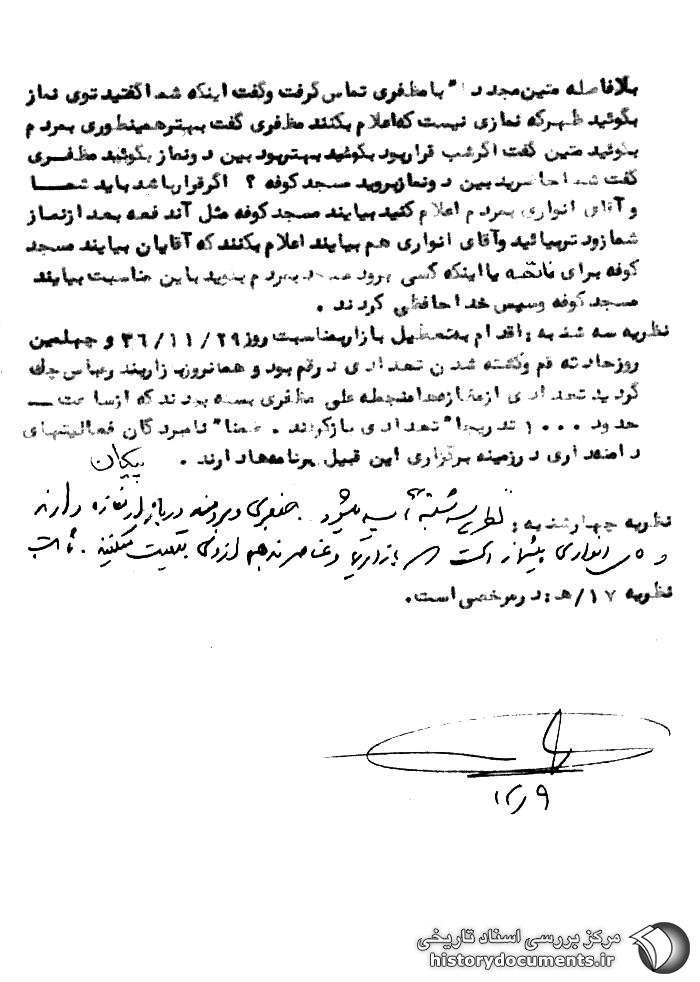 بلافاصله متین مجددا" با مظفری تماس گرفت وگفت اینکه شما گفتید توی نماز
بگوئید ظهرکه نمازی نیست که اعلام بکنند مظفری گفت بهتر همینطوری بمردم
بگوئید متین گفت اگر شب قرار بود بگوئید بهتر بود بین دو نماز بگوئید مظفری
گفت شما حاضرید بین دو نماز بروید مسجد کوفه ؟ اگر قرار باشد باید شما
و آقای انواری بمردم اعلام کنید بیایند مسجد کوفه مثل آندفعه بعد از نماز
شما زودتر بیائید وآقای انواری هم بیایند اعلام بکنند که آقایان بیایند مسجد
کوفه برای فاتحه یا اینکه کسی برود مسجد بمردم بگوید باین مناسبت بیایند
مسجد کوفه وسپس خداحافظی کردند .
نظریه سه شنبه : اقدام به تعطیل بازار بمناسبت روز ۳۶/۱۱/۲۹ و چهلمین
روز حادثه قم وکشته شدن تعدادی در قم بود و همانروز بازار بند رعباس چک
گردید تعدادی از مغازه‌ها منجمله علی مظفری بسته بودند که از ساعت
حدود ۱۰۰۰ تدریجا" تعدادی باز کردند . ضمنا" نامبردگان فعالیتهای
دامنه‌داری در زمینه برگزاری این قبیل برنامه‌ها دارند . پیکان
نظریه چهارشنبه : نظریه سه شنبه تأیید میشود . در بازار مغازه دارند
و انواری پیشنماز است بازاریها و عناصر مذهبی از وی تبعیت میکنند .
نظریه ۱۷/هـ : در مرخصی است .
۹ر۱۲
مرکز بررسی اسناد تاریخی
historydocuments.ir